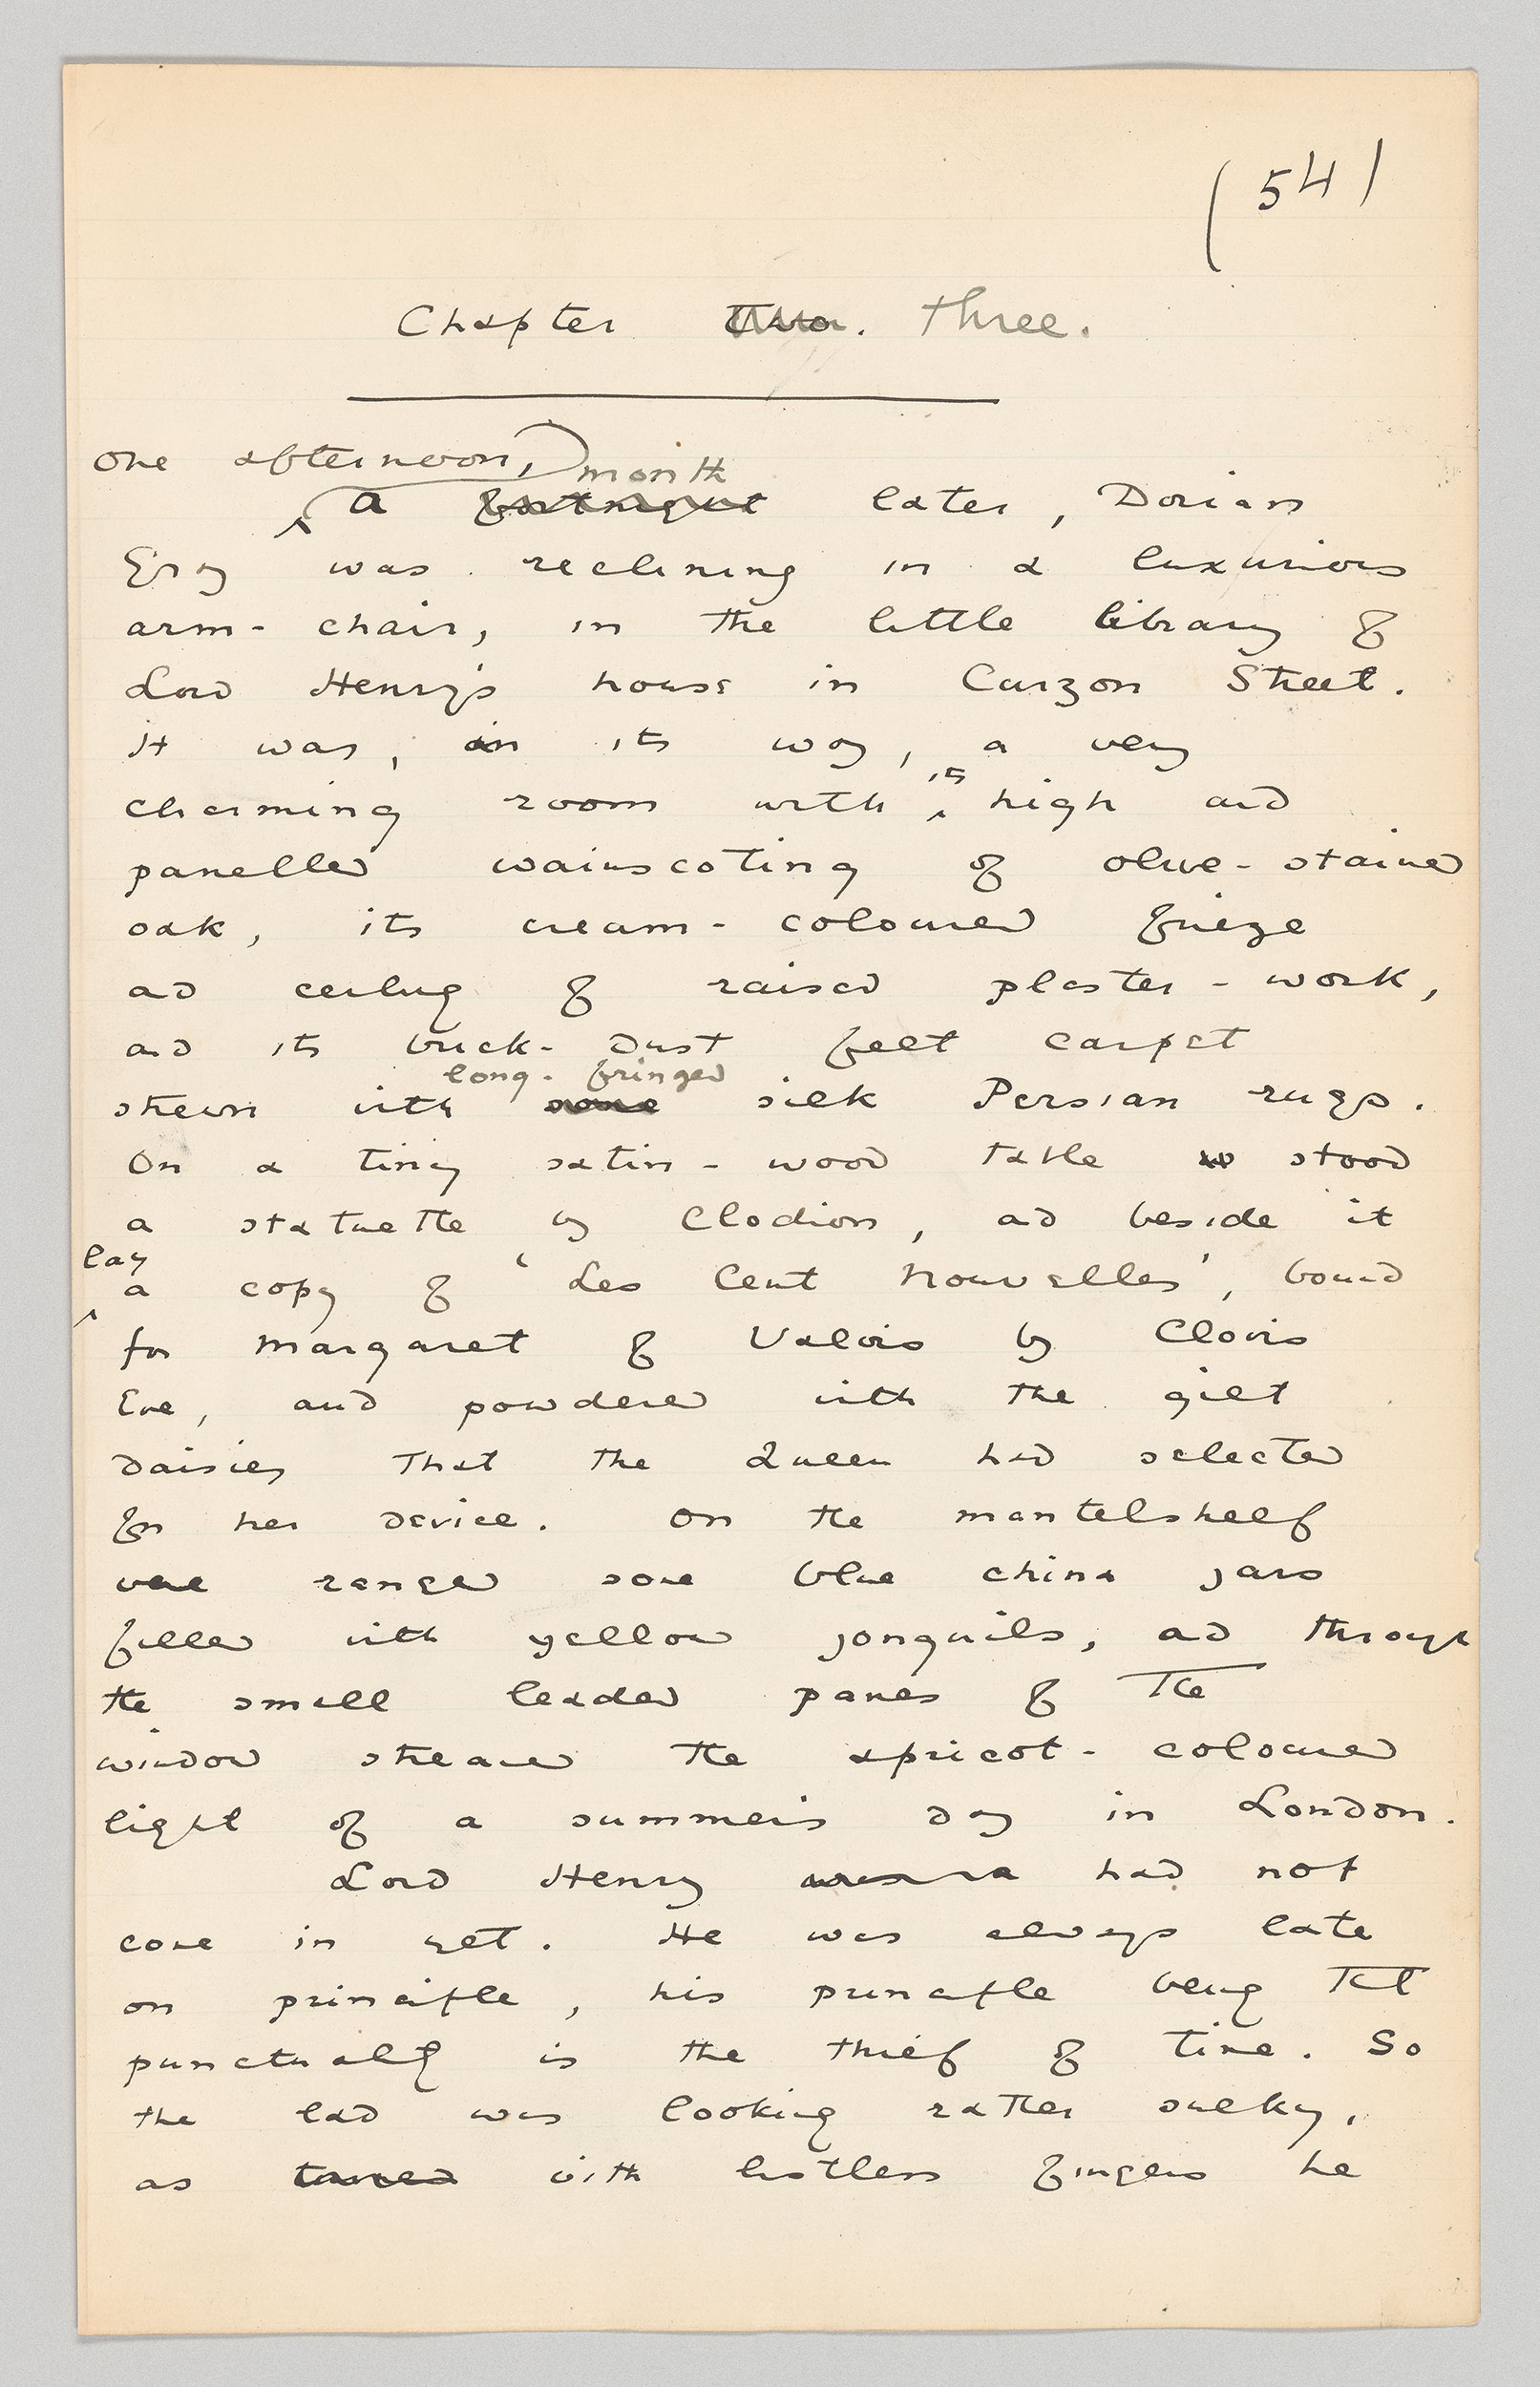 (54)
Chapter Two. Three.
One afternoon, month
a fortnight later, Dorian
Gray was reclining in a luxurious
arm-chair, in the little library of
Lord Henry's house in Curzon Street.
It was, in its way, a very
its
charming room with high and
panelled wainscoting of olive-stained
oak, its cream-coloured frieze
and ceiling of raised plaster-work,
and its brick-dust felt carpet
long-fringed
strewn with some silk Persian rugs.
On a tiny satin-wood table stood
a statuette by Clodion, and beside it
lay
a copy of 'Les Cent Nouvelles', bound
for Margaret of Valois by Clovis
Eve, and powdered with the gilt
daisies that the Queen had selected
for her device. On the mantelshelf
were ranged some blue china jars
filled with yellow jonquils, and through
the small leaded panes of the
window streamed the apricot-coloured
light of a summer's day in London.
Lord Henry had not
come in yet. He was always late
on principle, his principle being that
punctuality is the thief of time. So
the lad was looking rather sulky,
as with listless fingers he